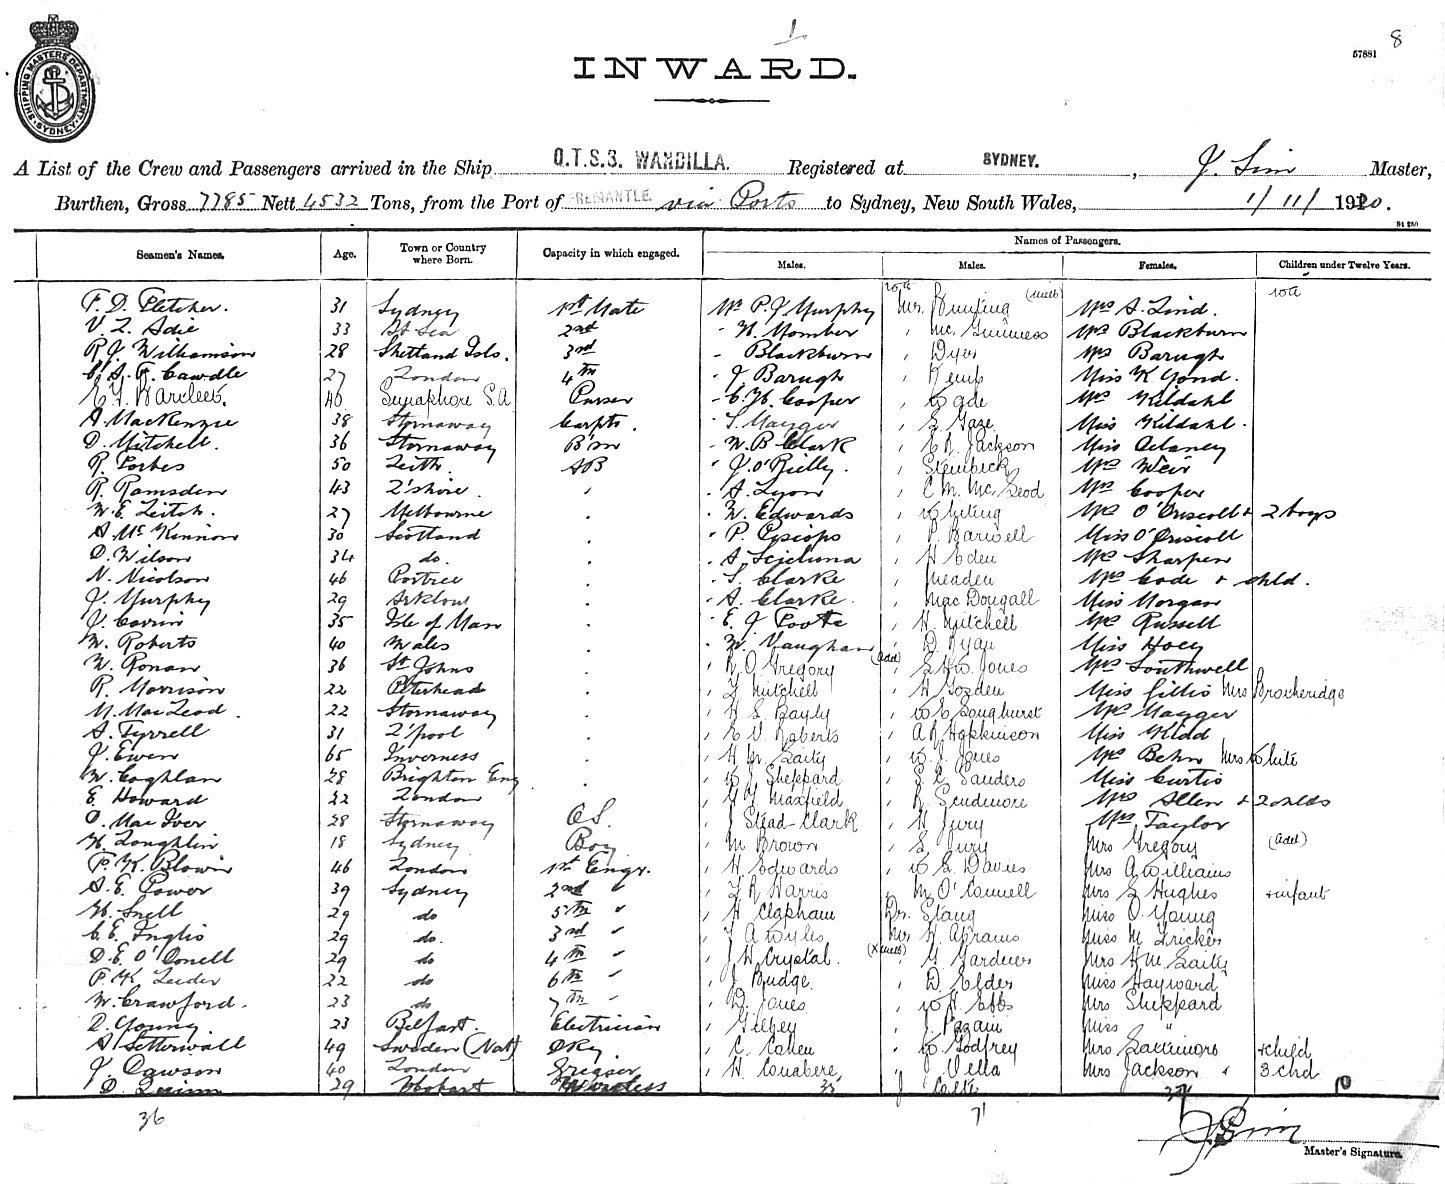 1
8
57881
INWARD.
SHIPPING MASTERS DEPARTMENT SYDNEY
A List of the Crew and Passengers arrived in the Ship Q.T.S.S. WANDILLA. Registered at SYDNEY. , J. Sim Master,
Burthen, Gross 7785 Nett 4532 Tons, from the Port of FREMANTLE via Ports to Sydney, New South Wales, 1/11/1920.
St 280
Names of Passengers.
Seamen's Names. Age. Town or Country where Born. Capacity in which engaged. Males. Males. Females. Children under Twelve Years.
F. D. Fletcher. 31 Sydney 1st Mate Mr P. J Murphy Mr. Bunting (melb) Mrs A. Lind.
V. L. Adie 33 At Sea 2nd " H. Momber " Mc. Guinness Mrs Blackburn
R. J. Williamson 28 Shetland Isls. 3rd " Blackburn " Dyer Mrs Barugh
C. A. F. Cawdle 27 London 4th " J Barugh " Kemp Miss K Yond.
46 Semaphore S.A Purser " C. H. Cooper " Wade Mrs Kildahl
A. MacKenzie 38 Stornaway Carptr. " S. Maygger " S. Gaze. Miss Kildahl.
D. Mitchell. 36 Stornaway B'sn " W. B Clark " E R. Jackson Miss Delaney
R. Forbes 50 Leith. AB " J. O'Reilly. " Steinbeck Mrs Weir
R. Ramsden 43 L'shire. " " A. Lyon " C M. McLeod Mrs Cooper
W. E. Leitch. 27 Melbourne " " W. Edwards " Whiting Mrs O'Driscoll + 2 boys
A. McKinnon 30 Scotland " " P. Episiops " P. Barwell Miss O'Driscoll
D. Wilson 34 do. " " A. Scicluna " H Eden Mrs Sharpen
N. Nicolson 46 Portree " " S. Clarke " Meaden Mrs Code + child.
J. Murphy 29 Arklow " " A. Clarke. " MacDougall Miss Morgan
J. Corrin 35 Isle of Man " " E. J Foote " H. Mitchell Mrs Russell
W. Roberts 40 Wales " " W. Vaughan " D Ryan Miss Hoey
W. Ronan 36 St Johns " " R. O Gregory (adel) " S. H. W. Jones Mrs Southwell
R. Morrison 22 Peterhead " " F Mitchell " H Gozden Miss Gillis Mrs Brockeridge
M. MacLeod. 22 Stornaway " " H S. Bayly " W E Songhurst Mrs Maygger
A. Tyrrell 31 L'pool " " E V. Roberts " A R Hopkinson Miss Kidd
J. Ewen 65 Inverness " " H W. Laity " W. J. Jones Mrs Behn Mrs White
W. Coghlan 28 Brighton Eng " " W J Sheppard " S. C. Sanders Miss Curtis
E. Howard 22 London " " G. Y. Maxfield " R. Scudmore Mrs Allen + 2 childs
D. MacIver 28 Stornaway O.S. " J Stead-Clark " H Jury Mrs Taylor
H. Loughlin 18 Sydney Boy " M Brown " E. Jury Mrs Gregory (adel)
P. K. Blowin 46 London 1st Engr. " H. Edwards " W. E. Davies Mrs A Williams
A. E. Power 39 Sydney 2nd " " L R Harris " M O'Connell Mrs S Hughes + infant
H. Snell 29 do 5th " " H Clapham Dr. Stang Miss O. Young
C. E. Inglis 29 do. 3rd " " F A Wyles Mr. H Abrams Miss M Fricker
D. E. O'Donell 29 do 4th " " J. H. Crystal. (x melb) " G Gardner Mrs H M. Laity
P. K. Leeder 22 do 6th " " J Budge. " D. Elder Miss Hayward
W. Crawford. 23 do 7th " " D. Jones " W. H. Ebbs Mrs Sheppard
D. Young. 23 Belfast. Electrician " Gilhey " J. Pagani Miss "
A Setterwall 49 Sweden (Nat) Dky. " C. Cohen " W Godfrey Mrs Lattimore + child
J. Dawson 40 London Greaser " H. Conabere " J Vella Mrs Jackson + 3 chd
D. Quinn 29 Hobart Wireless
36 71 10
J. Sim
Master's Signature.